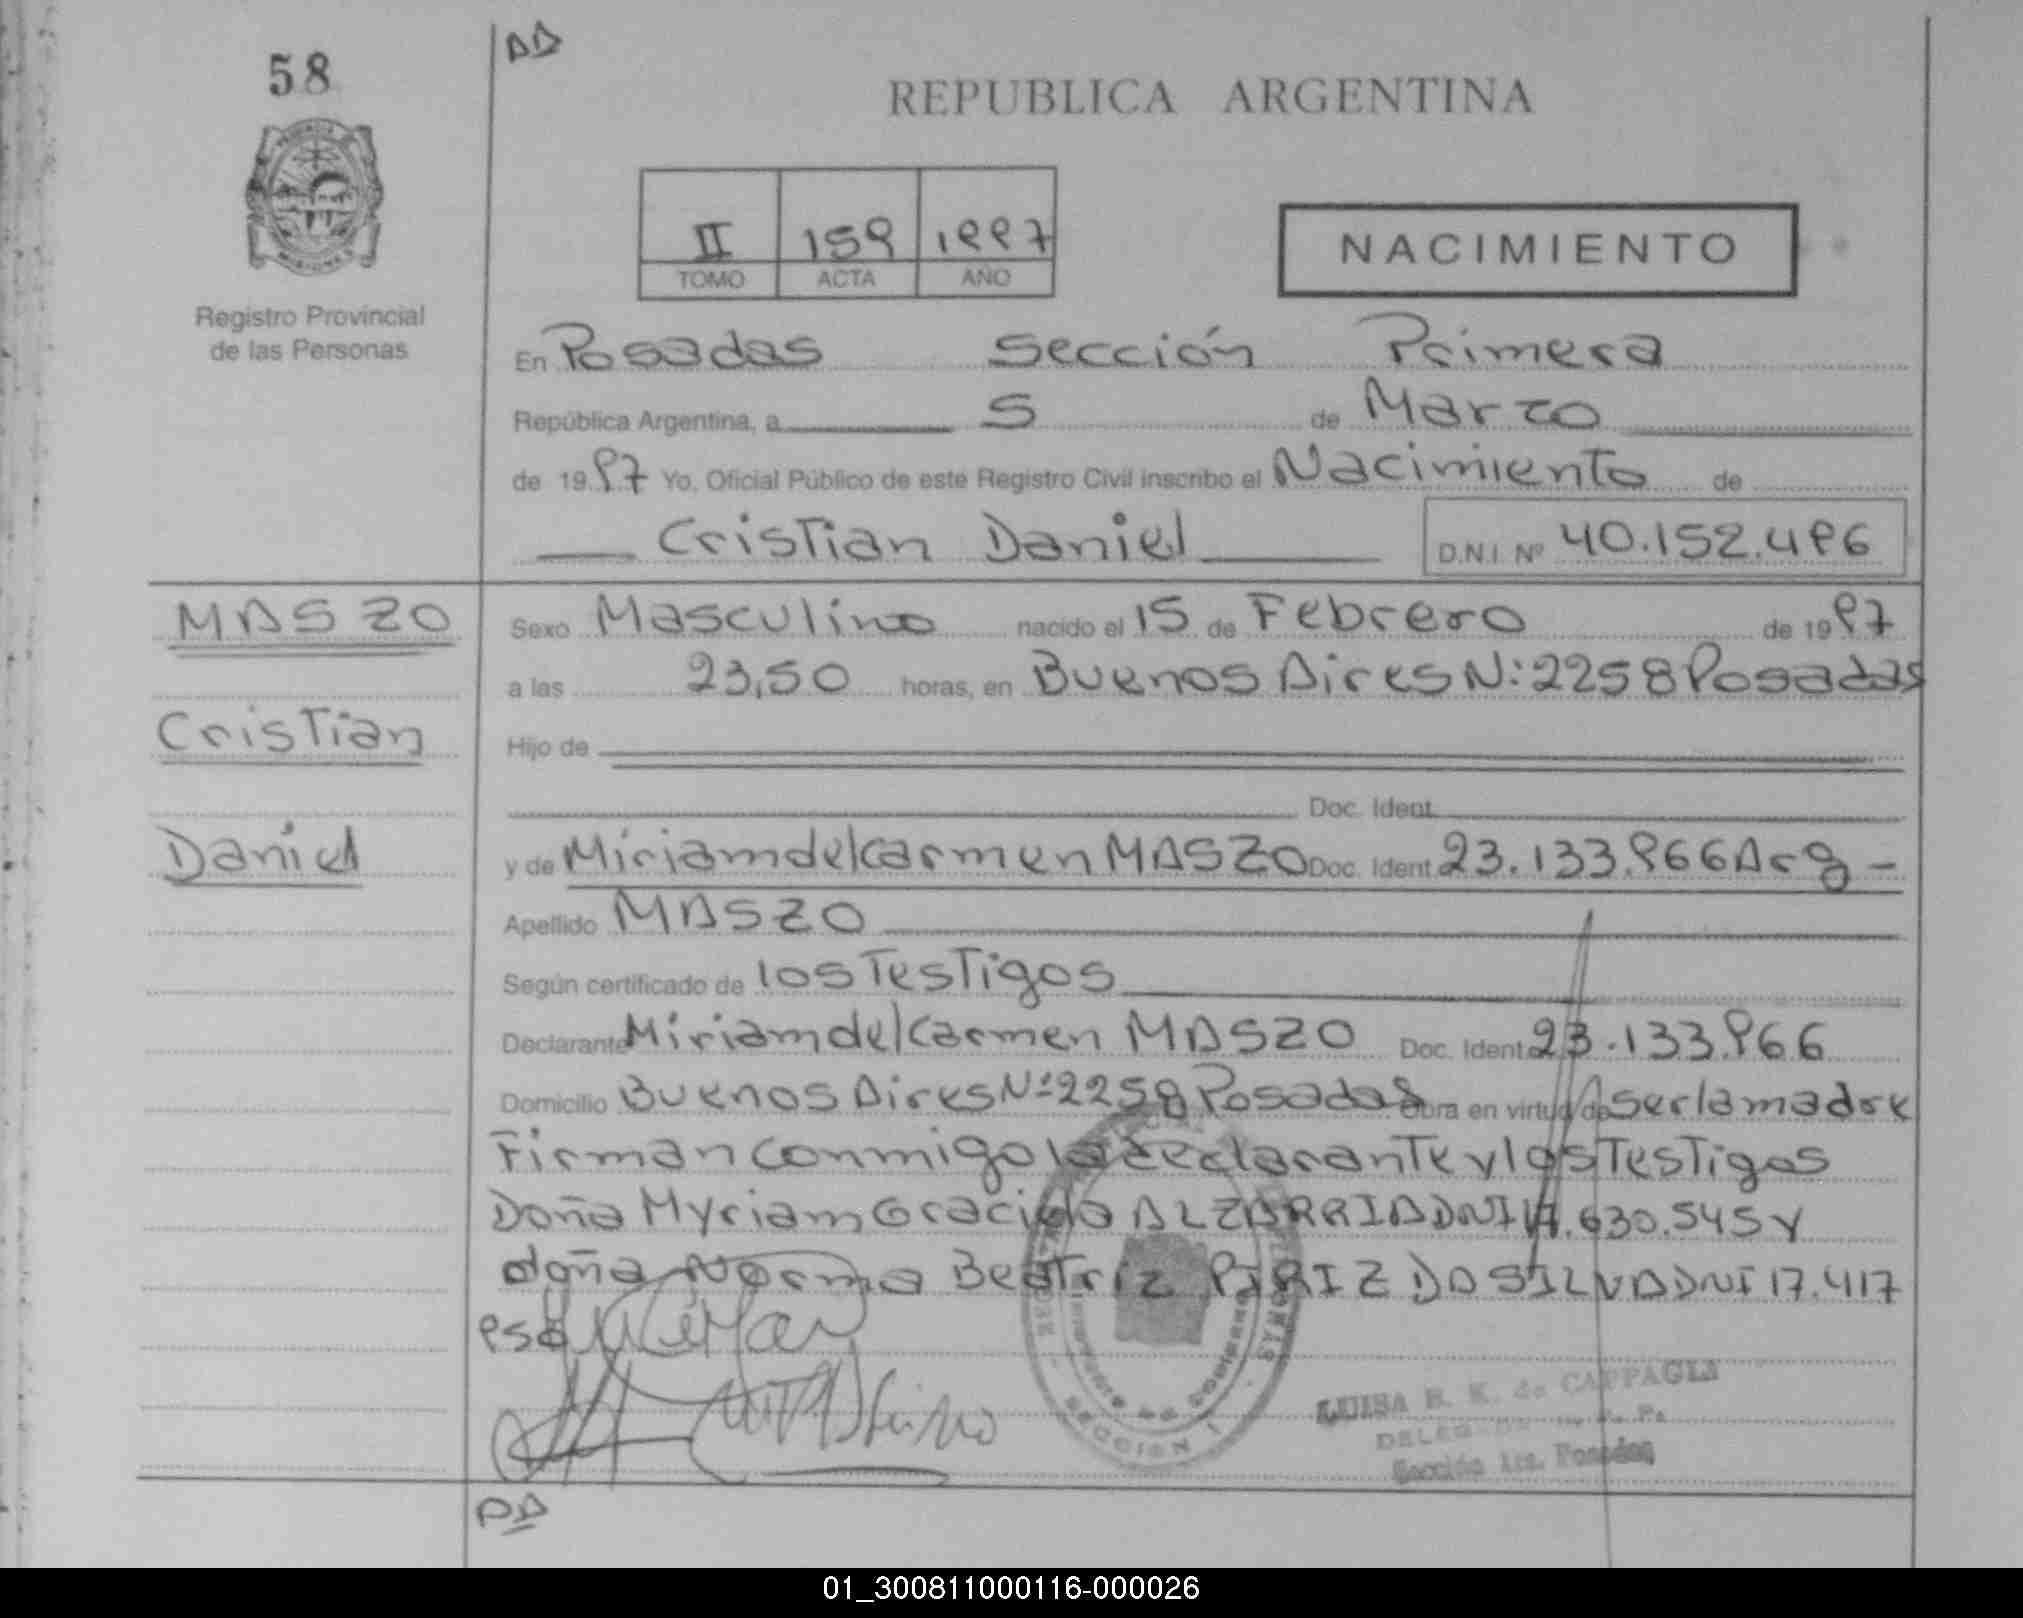 58
AA
REPUBLICA ARGENTINA
II 159 1997
TOMO ACTA AÑO
NACIMIENTO
Registro Provincial
de las Personas
En Posadas Sección Primera
República Argentina, a 5 de Marzo
de 1997 Yo, Oficial Público de este Registro Civil inscribo el Nacimiento de
Cristian Daniel D.N.I. Nº 40.152.496
MASZO
Cristian
Daniel
Sexo Masculino nacido el 15 de Febrero de 1997
a las 23,50 horas, en Buenos Aires N: 2258 Posadas
Hijo de
Doc. Ident.
y de Miriam del Carmen MASZO Doc. Ident. 23.133.966 Arg -
Apellido MASZO
Según certificado de los Testigos
Declarante Miriam del Carmen MASZO Doc. Ident. 23.133.966
Domicilio Buenos Aires Nº 2258 Posadas Obra en virtud de ser la madre
Firman conmigo la declarante y los Testigos
Doña Myriam Graciela ALZARRIA DNI 17.630.545 y
doña Norma Beatriz PIRIZ DA SILVA DNI 17.417
SECCION 1
LUISA B. K. de CAPPAGLI
Sección 1ra. Posadas
01_300811000116-000026